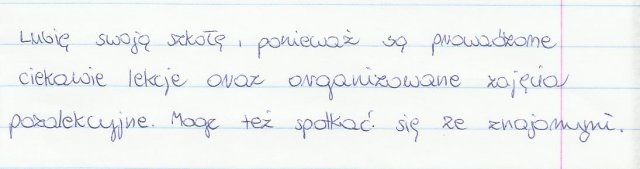 Lubię swoją szkołę, ponieważ są prowadzone
ciekawie lekcje oraz organizowane zajęcia
pozalekcyjne. Mogę też spotkać się ze znajomymi.